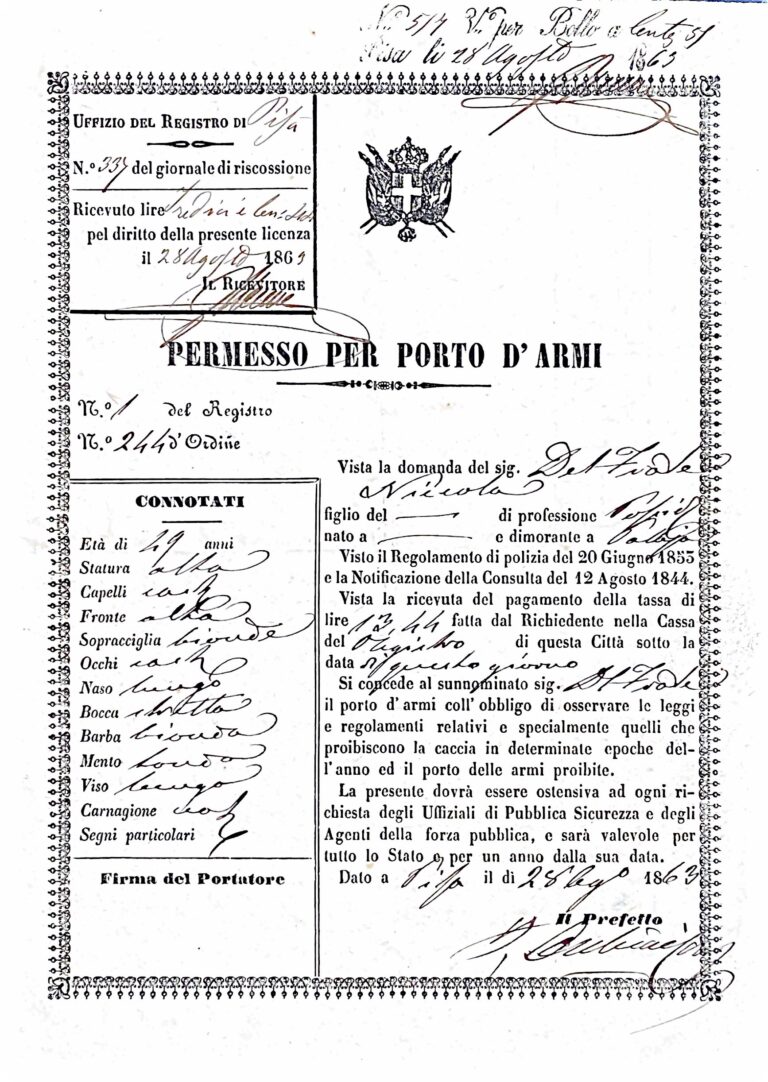 per Bollo a Cent
Pisa li 28 Agosto 1863
UFFIZIO DEL REGISTRO DI Pisa
N.º 337 del giornale di riscossione
Ricevuto lire Tredici e
pel diritto della presente licenza
il 28 Agosto 1863
IL RICEVITORE
PERMESSO PER PORTO D'ARMI
N.º 1 del Registro
N.º 244 d'Ordine
CONNOTATI
Età di 29 anni
Statura alta
Capelli cast
Fronte alta
Sopracciglia bionde
Occhi cast
Naso lungo
Bocca stretta
Barba bionda
Mento tondo
Viso lungo
Carnagione
Segni particolari
Firma del Portatore
Vista la domanda del sig. Del Frate
Niccola
figlio del — di professione Possid
nato a — e dimorante a
Visto il Regolamento di polizia del 20 Giugno 1853
e la Notificazione della Consulta del 12 Agosto 1844.
Vista la ricevuta del pagamento della tassa di
lire 13,44 fatta dal Richiedente nella Cassa
del Registro di questa Città sotto la
data di questo giorno
Si concede al sunnominato sig. Del Frate
il porto d'armi coll'obbligo di osservare le leggi
e regolamenti relativi e specialmente quelli che
proibiscono la caccia in determinate epoche del-
l'anno ed il porto delle armi proibite.
La presente dovrà essere ostensiva ad ogni ri-
chiesta degli Uffiziali di Pubblica Sicurezza e degli
Agenti della forza pubblica, e sarà valevole per
tutto lo Stato e per un anno dalla sua data.
Dato a Pisa il dì 28 Ago 1863
Il Prefetto